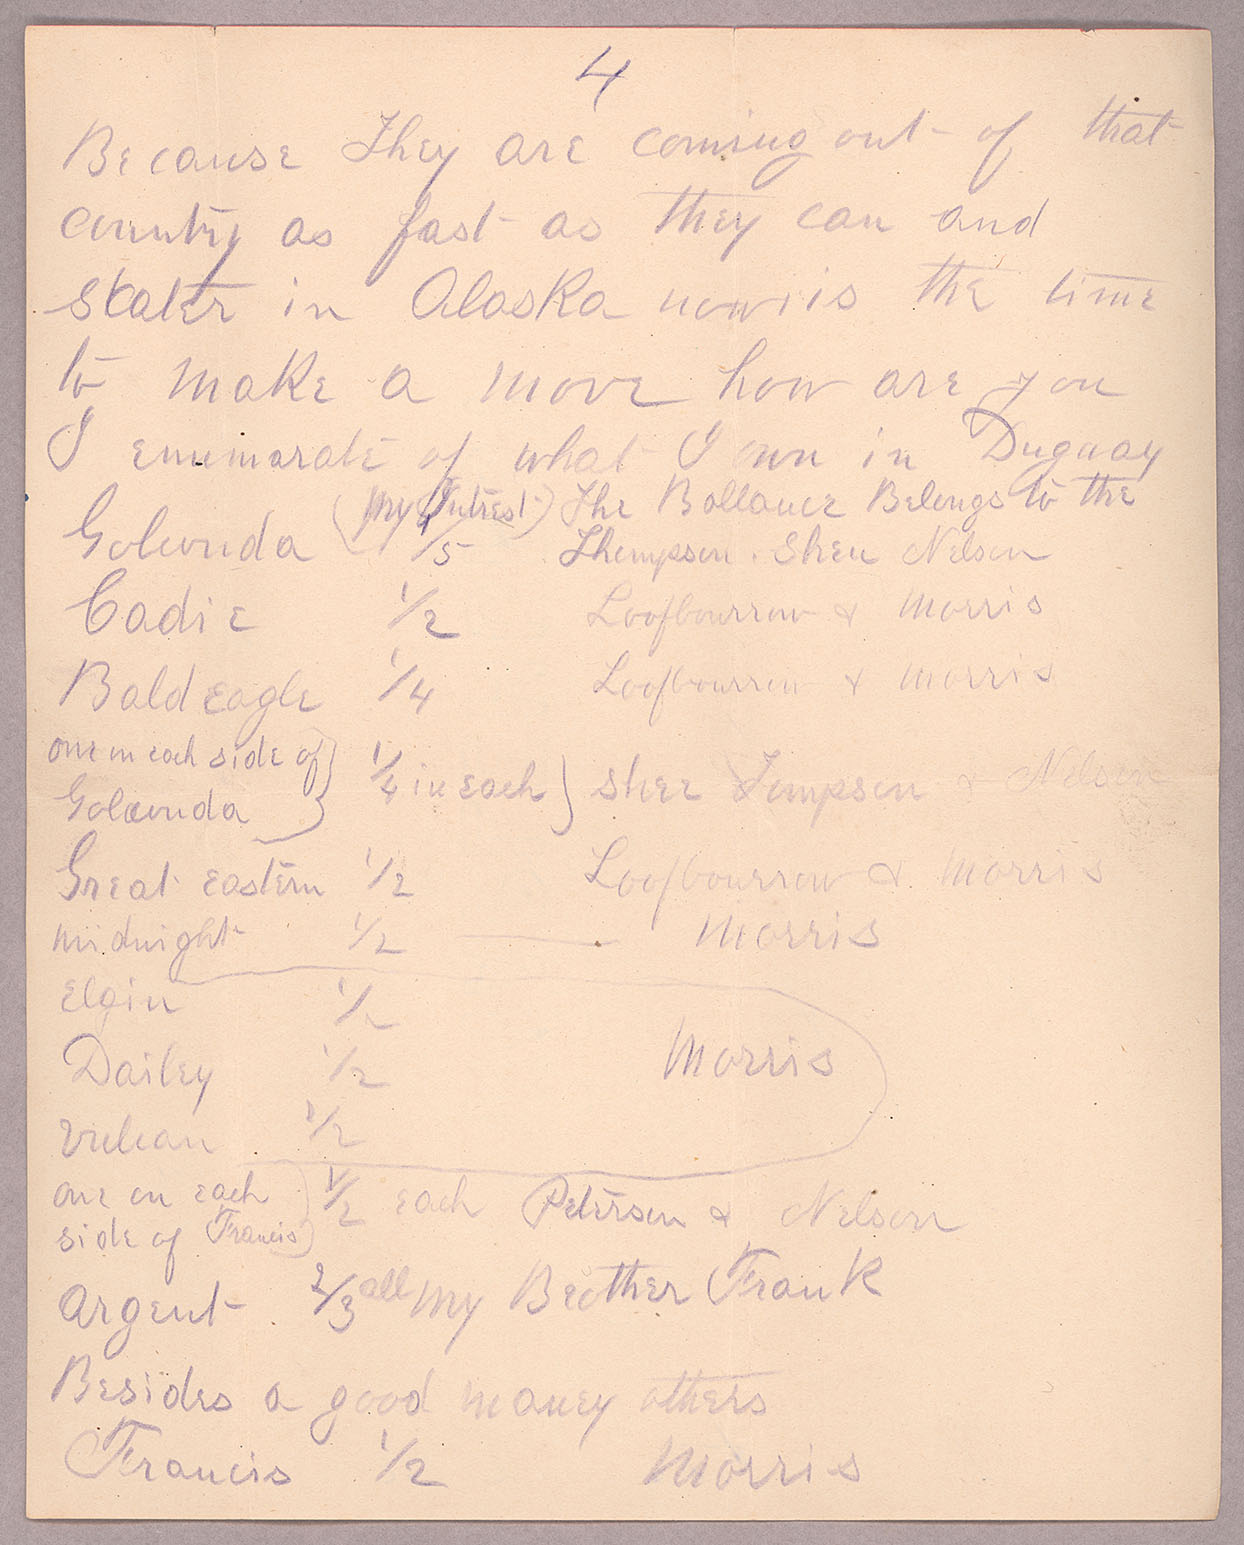 4
Because They are coming out of that
country as fast as they can and
stake in Alaska now is the time
to make a move how are you
I enumarate of what I own in Duguay
(My Intrest) The Ballance Belongs to the
Golconda 1/5 Thompson. Sheu Nelson
Cadie 1/2 Loofbourrow & Morris
Bald Eagle 1/4 Loofbourrow & Morris
one on each side of
Golconda } 1/4 in Each } Shee Tompson & Nelson
Great Eastern 1/2 Loofbourrow & Morris
Midnight 1/2 — Morris
Elgin 1/2
Dailey 1/2 Morris
Vulcan 1/2
one on each
side of Francis) 1/2 each Peterson & Nelson
Argent 2/3 all My Brother Frank
Besides a good money others
Francis 1/2 Morris